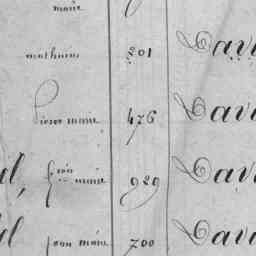 marie
mathurin 201 Davi
pierre marie 476 Davi
marie 929 Davi
jean marie 700 Davi